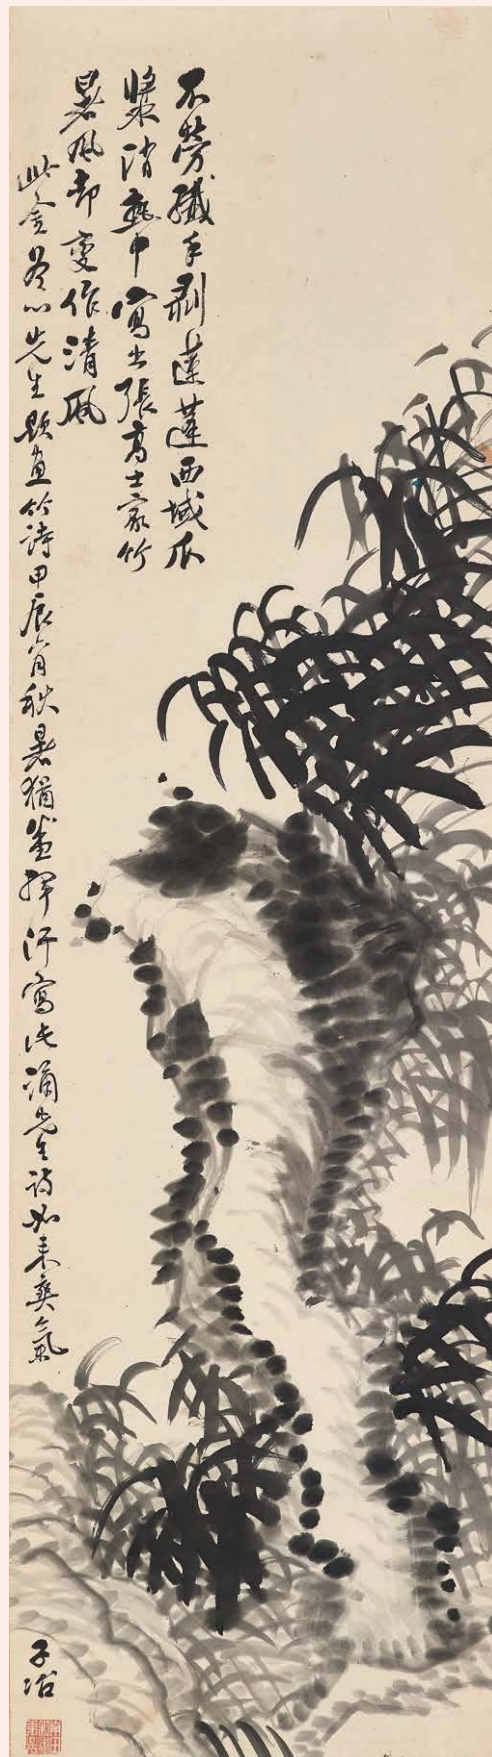 不勞纖手剥蓮蓬西域瓜
漿消熱中寫出張高士家竹
暑風却變作清風
此金冬心先生題畫竹詩甲辰肖秋暑猶盛揮汗寫此誦先生詩如來爽氣
子冶